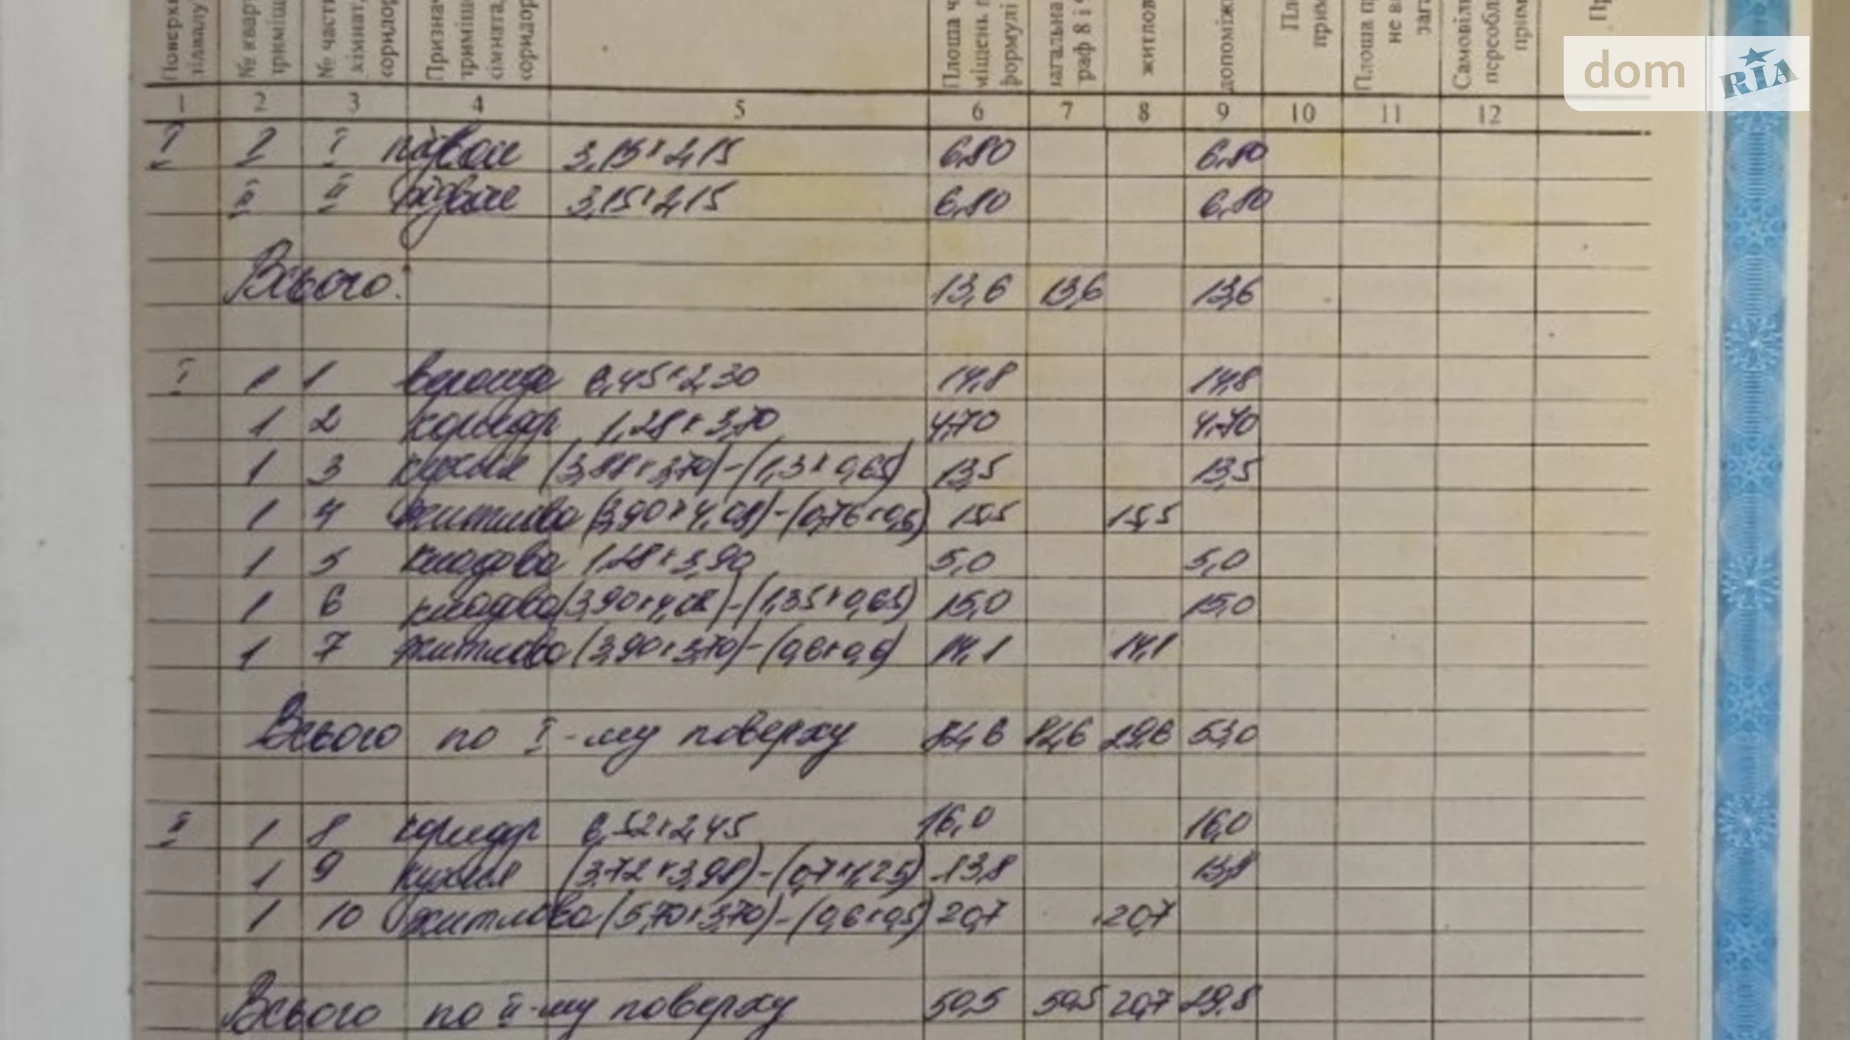 Поверхи
підвалу
№ кварт
приміщ
№ част
кімнат,
коридор
Признач
приміщ
кімната,
коридор
Площа ч
міщень п
формулі
загальна
граф 8 і 9
житлов
допоміжн
Площа п
не в
зага
Самовіль
переобл
прим
dom RIA
1 2 3 4 5 6 7 8 9 10 11 12
I I I підвал 3,15x2,15 6,80 6,80
II II підвал 3,15x2,15 6,80 6,80
Всього: 13,6 13,6 13,6
I 1 1 веранда 6,45x2,30 14,8 14,8
1 2 коридор 1,28x3,70 4,70 4,70
1 3 кухня (3,88x3,70)-(1,3x0,65) 13,5 13,5
1 4 житлова (3,90x4,08)-(0,76x0,5) 15,5 15,5
1 5 кладова 1,28x3,90 5,0 5,0
1 6 кладова (3,90x4,08)-(1,35x0,65) 15,0 15,0
1 7 житлова (3,90x3,70)-(0,6x0,6) 14,1 14,1
Всього по I-му поверху 82,6 82,6 29,6 53,0
II 1 8 коридор 6,52x2,45 16,0 16,0
1 9 кухня (3,72x3,98)-(0,7x1,25) 13,8 13,8
1 10 житлова (5,70x3,70)-(0,6x0,5) 20,7 20,7
Всього по II-му поверху 50,5 50,5 20,7 29,8